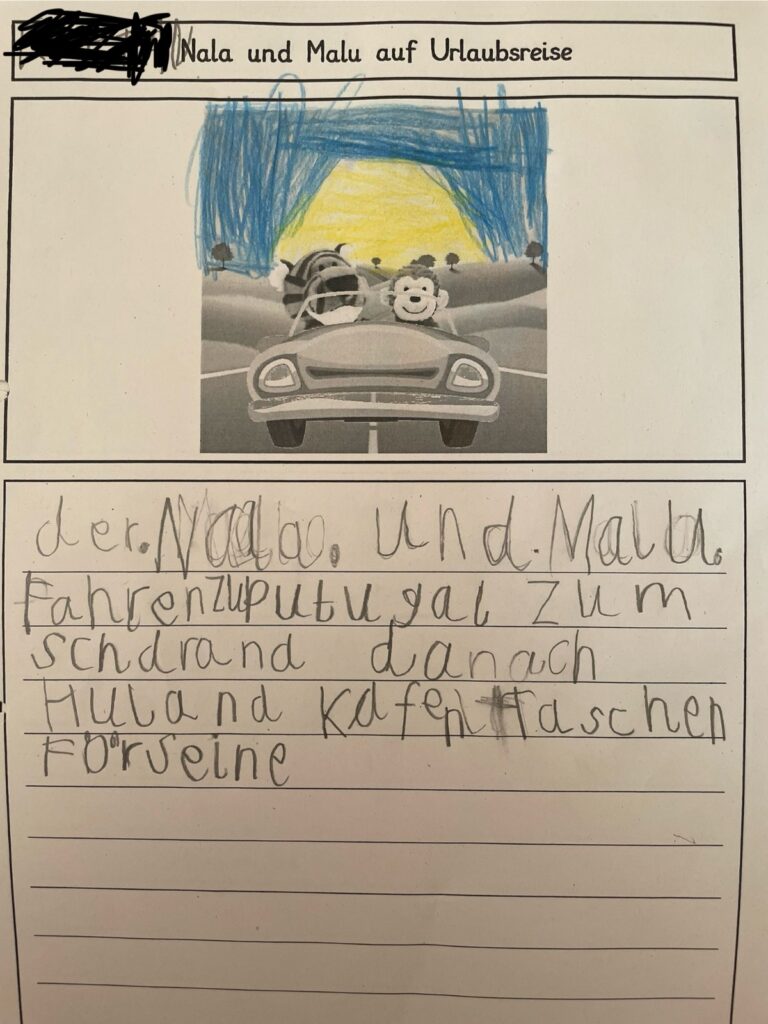 Nala und Malu auf Urlaubsreise
der. Nala. und. Malu.
Fahren zuputugal zum
schdrand danach
Huland kdfen Taschen
Förseine